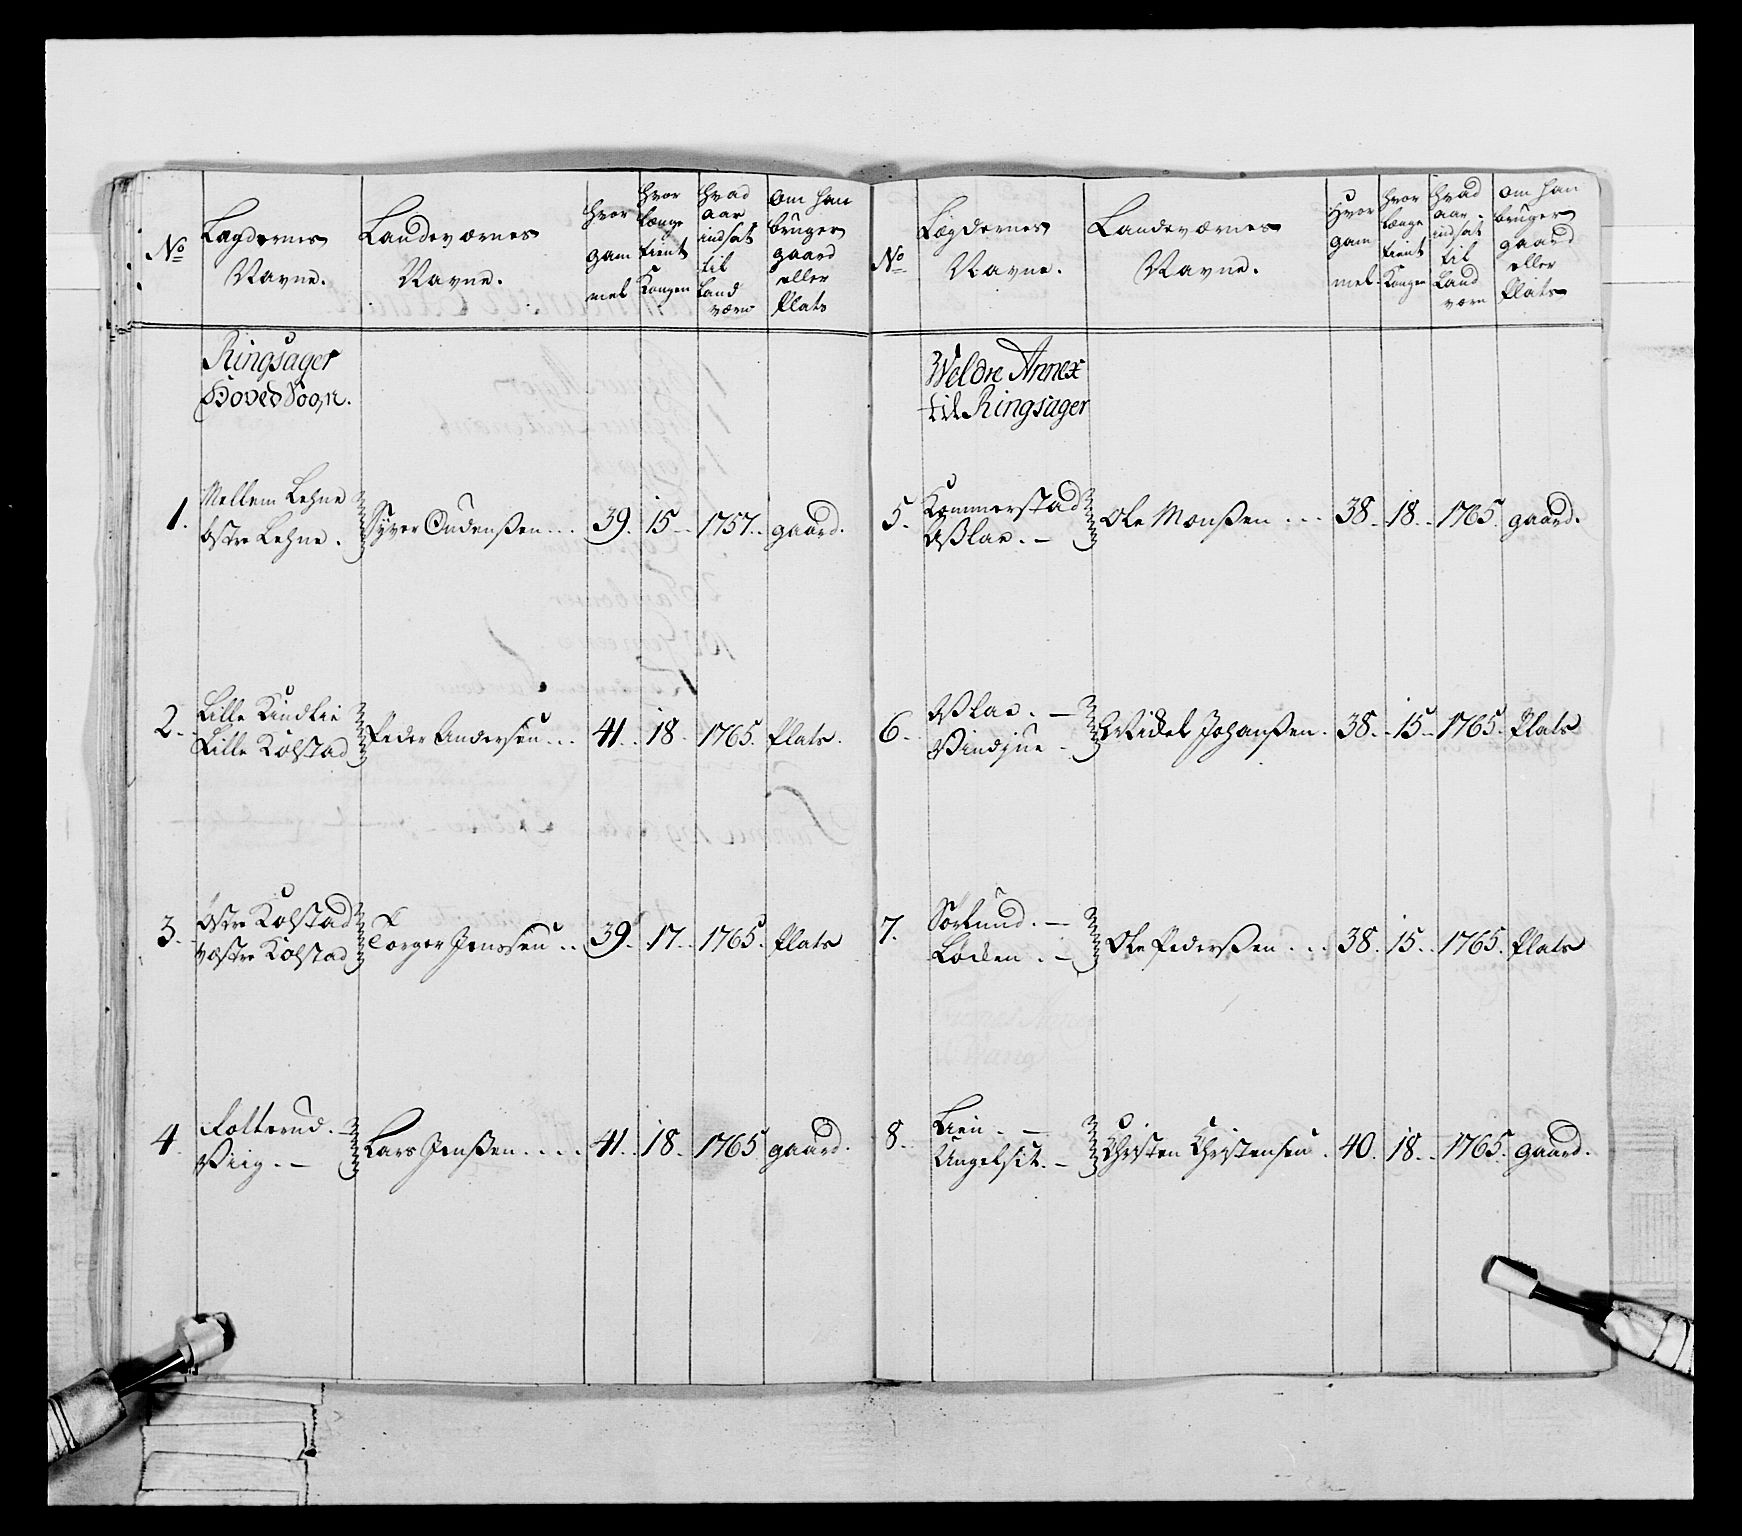 No
Lægdernes
Navne.
Landeværnes
Navne.
Hvor
gam
mel
Hvor
længe
tient
Kongen
Hvad
aar
indsat
til
Land
værn
Om han
bruger
gaard
eller
Plats
Ringsager
Hoved Sogn.
1. Mellem Lehne
Østre Lehne. Syver Oudenßen... 39. 15.. 1757.. gaard.
2. Lille Kindlie
Lille Kolstad Peder Andersen... 41.. 18. 1765. Plats.
3. Østre Kolstad
Vestre Kolstad Torger Jenssen.. 39. 17.. 1765. Plats
4. Folterud. —
Wiig. — Lars Jenßen.... 41.. 18. 1765 gaard.
No
Lægdernes
Navne.
Landeværnes
Navne.
Hvor
gam
mel.
Hvor
længe
tient
Kongen
Hvad
aar
indsat
til
Land
værn
Om han
bruger
gaard
eller
Plats
Weldre Annex
til Ringsager
5. Kommerstad
Aßlae. — Ole Monßen... 38. 18.. 1765. gaard.
6. Aßlae. —
Windjue Mickel Johanßen. 38. 15. 1765. Plats
7. Sørlund. —
Løcken. — Ole Pederßen... 38. 15.. 1765. Plats
8. Lien. —
Ungelsit. — Christen Christensen. 40. 18.. 1765. gaard.